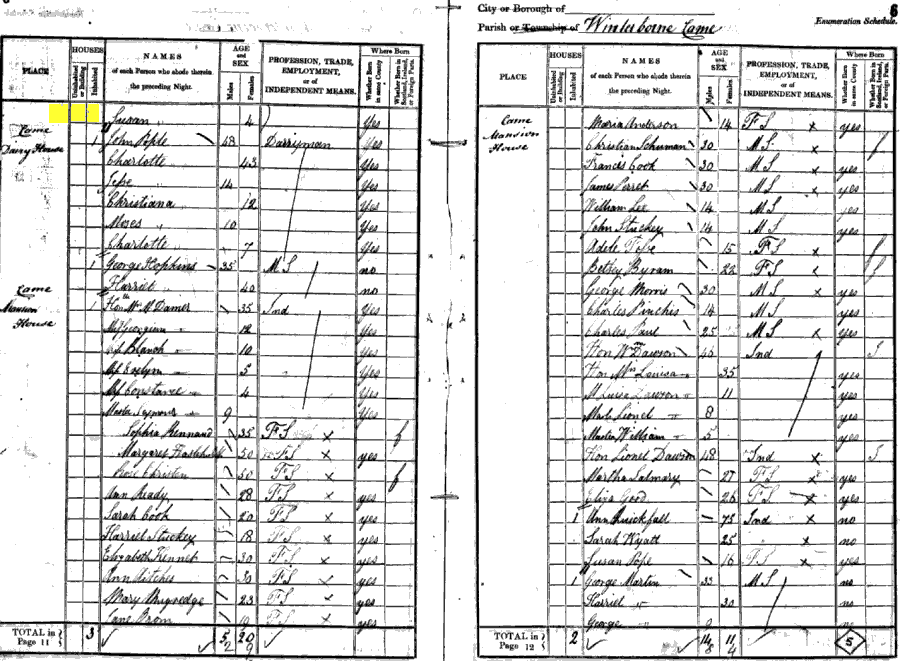 PLACE
HOUSES
Uninhabited or Building
Inhabited
NAMES
of each Person who abode therein the preceding Night.
AGE and SEX
Males
Females
PROFESSION, TRADE, EMPLOYMENT, or of INDEPENDENT MEANS.
Where Born
Whether Born in same County
Whether Born in Scotland, Ireland, or Foreign Parts.
Susan 4 Yes
Came Dairy House 1 John Pople 48 Dairyman Yes
Charlotte 43 Yes
14 Yes
Christiana 12 Yes
Moses 10 Yes
Charlotte 7 Yes
1 George Hopkins 35 M S no
Harriet 40 no
Came Mansion House 1 Damer 35 Ind Yes
Georgiana 12 Yes
Blanch 10 Yes
Evelyn 5 Yes
Constance 4 Yes
Master Seymour 9 Yes
Sophia Kennand 35 F S x f
Margaret 50 F S x yes
Christen 50 F S x f
Ann Ready 28 F S x yes
Sarah Cook 20 F S x yes
Harriet Stuckey 18 F S x yes
Elizabeth Kennet 30 F S x yes
Ann 30 F S x yes
Mary 23 F S x yes
Jane F S x yes
TOTAL in Page 11 3 5 20
2 9
City or Borough of
6
Parish or Township of Winterborne Came
Enumeration Schedule.
PLACE
HOUSES
Uninhabited or Building
Inhabited
NAMES
of each Person who abode therein the preceding Night.
AGE and SEX
Males
Females
PROFESSION, TRADE, EMPLOYMENT, or of INDEPENDENT MEANS.
Where Born
Whether Born in same County
Whether Born in Scotland, Ireland, or Foreign Parts.
Came Mansion House Maria Anderson 14 F S x yes
Christian Schuman 30 M S x f
Francis Cook 30 M S x yes
James Perret 30 M S x yes
William Lee 14 M S yes
John Stuckey 14 M S yes
Adele 15 F S x f
Betsey Byram 22 F S x f
George Morris 30 M S x yes
Charles Pinchis 14 M S yes
Charles Paul 25 M S x yes
Hon Dawson 40 Ind I
Hon Mrs Louisa 35 yes
Louisa Dawson 11 yes
Master Lionel 8 yes
Master William 5 yes
Hon Lionel Dawson 48 Ind x I
Martha 27 F S x yes
Eliza Good 26 F S x yes
1 Ann 75 Ind x no
Sarah Wyatt 25 x no
Susan Pope 16 F S x yes
1 George Martin 33 M S no
Harriet 30 no
George no
TOTAL in Page 12 2 14 11
8 4
5